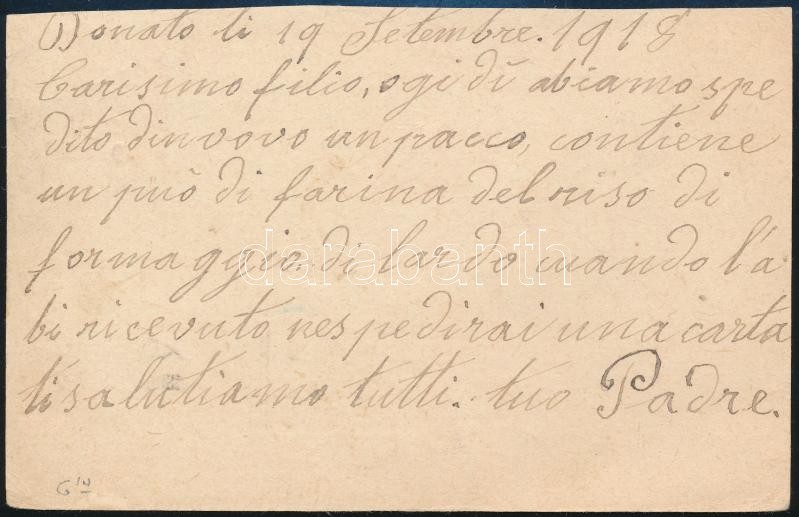 Donato li 19 Setembre. 1918
Carisimo filio, ogi dí abiamo spe
dito dinvovo un pacco, contiene
un puó di farina del riso di
formaggio. di lardo cuando l'a
bi ricevuto nespedirai una carta
ti salutiamo tutti. tuo Padre.
darabanth